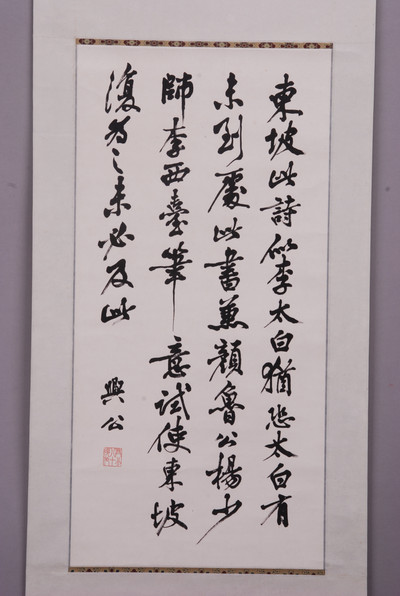 東坡此詩似李太白猶恐太白有
未到處此書兼顏魯公楊少
師李西臺筆意試使東坡
復為之未必及此
興公